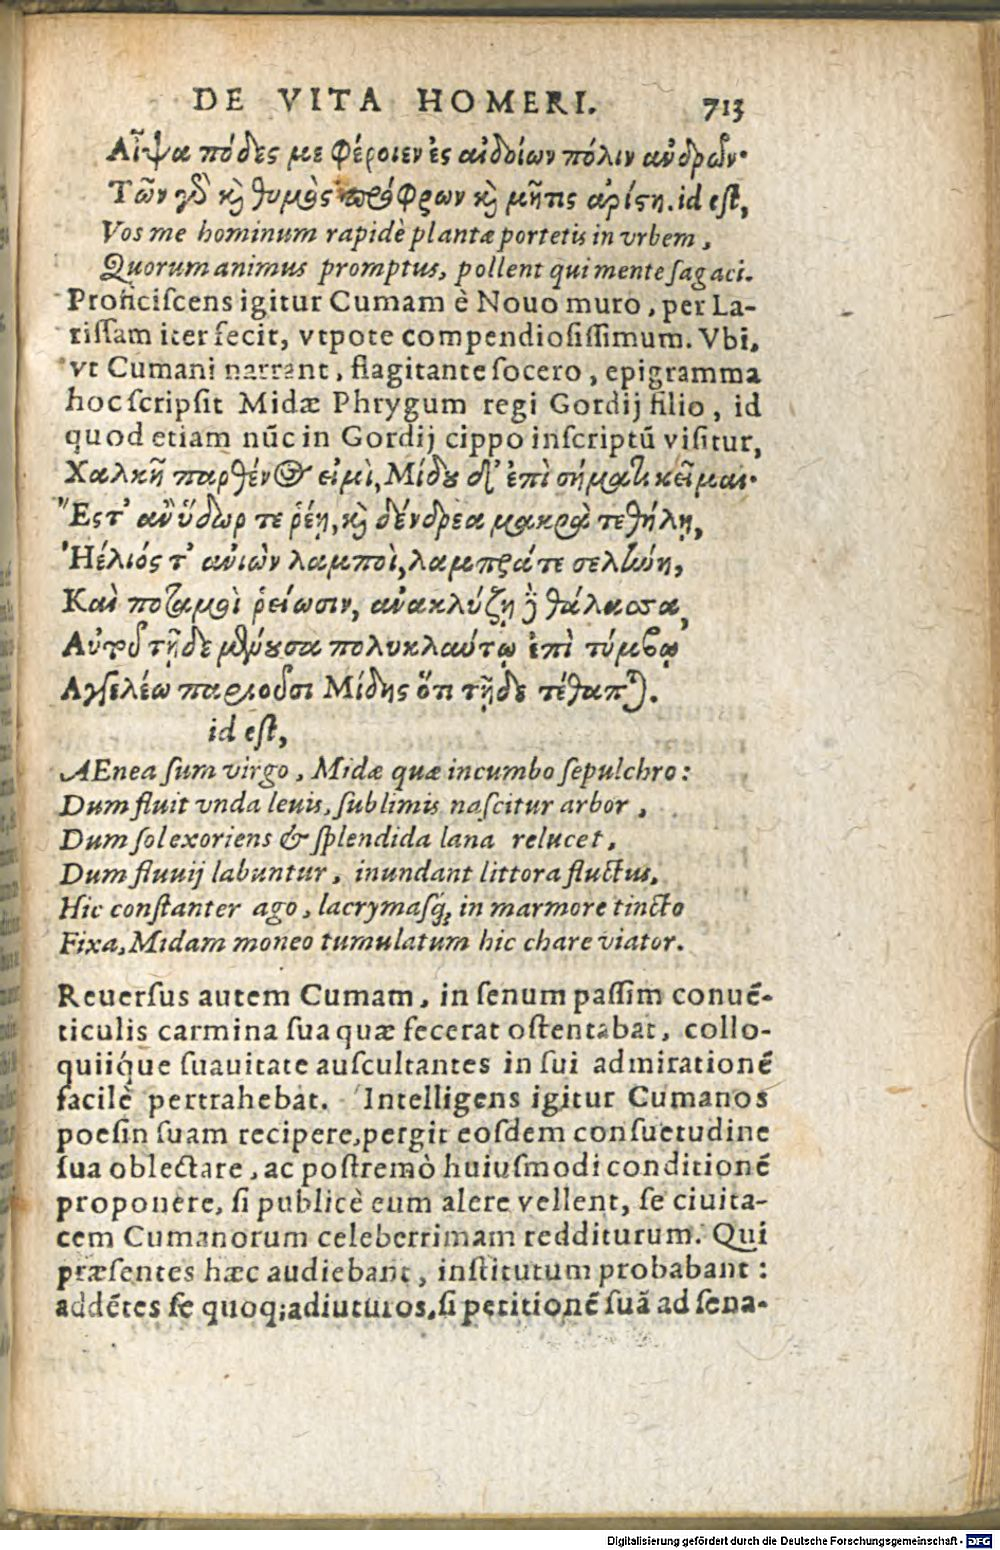 DE VITA HOMERI. 713
Αἶψα πόδες με φέροιεν ἐς αἰδοίων πόλιν ἀνδρῶν·
Τῶν γὸ κỳ θυμὸς πρόφρων κỳ μῆτις ἀρίςη. id eſt,
Vos me hominum rapidè plantæ portetis in vrbem,
Quorum animus promptus, pollent qui mente ſagaci.
Proficiſcens igitur Cumam è Nouo muro, per La-
riſſam iter fecit, vtpote compendioſiſſimum. Vbi,
vt Cumani narrant, flagitante ſocero, epigramma
hoc ſcripſit Midæ Phrygum regi Gordij filio, id
quod etiam nūc in Gordij cippo inſcriptū viſitur,
Χαλκῆ παρθένος εἰμὶ, Μίδου δ' ἐπὶ σήματι κεῖμαι·
Ἔςτ' ἂν ὕδωρ τε ῥέῃ, κỳ δένδρεα μακρὰ τεθήλῃ,
Ἠέλιός τ' ἀνιὼν λαμποὶ, λαμπράτε σελήνη,
Καὶ ποταμοὶ ῥείωσιν, ἀνακλύζῃ δὲ θάλασσα,
Αὐτοῦ τῇδε μένουσα πολυκλαύτῳ ἐπὶ τύμβῳ
Αγγελέω παριοῦσι Μίδης ὅτι τῇδε τέθαπται.
id eſt,
AEnea ſum virgo, Midæ quæ incumbo ſepulchro:
Dum fluit vnda leuis, ſublimis naſcitur arbor,
Dum ſol exoriens & ſplendida lana relucet,
Dum fluuij labuntur, inundant littora fluctus,
Hic conſtanter ago, lacrymaſq́; in marmore tincto
Fixa, Midam moneo tumulatum hic chare viator.
Reuerſus autem Cumam, in ſenum paſſim conuē-
ticulis carmina ſua quæ fecerat oſtentabat, collo-
quiiq́ue ſuauitate auſcultantes in ſui admirationē
facilè pertrahebat. Intelligens igitur Cumanos
poeſin ſuam recipere, pergit eoſdem conſuetudine
ſua oblectare, ac poſtremò huiuſmodi conditionē
proponere, ſi publicè eum alere vellent, ſe ciuita-
tem Cumanorum celeberrimam redditurum. Qui
præſentes hæc audiebant, inſtitutum probabant:
addētes ſe quoq; adiuturos, ſi petitionē ſuā ad ſena-
Digitalisierung gefördert durch die Deutsche Forschungsgemeinschaft - DFG